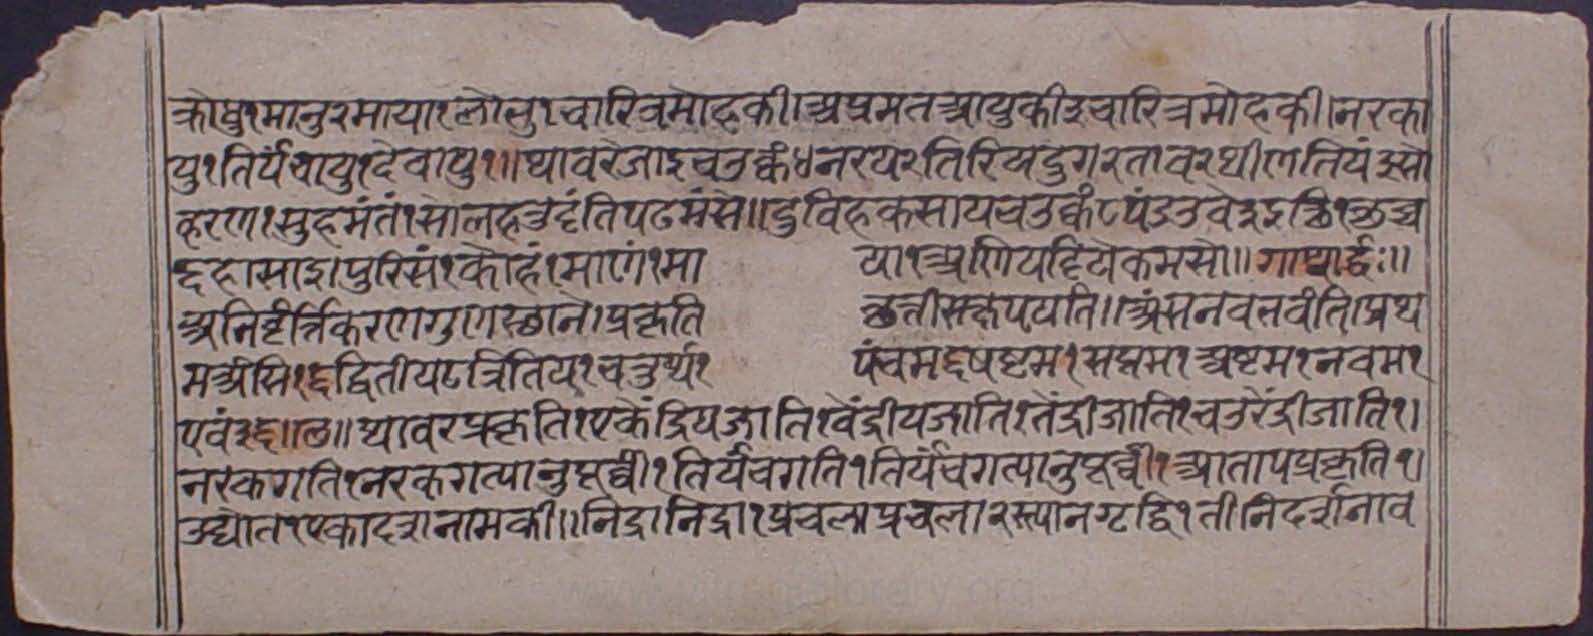 क्रोधु१मानु२माया१लोलु१चारित्रमोहकी।अप्रमतआयुकी३चारित्रमोहकी।नरका
यु१तिर्यंचायु१देवायु१॥थावरजाइचउक्कं४नरय२तिरियदुग२तावर१थीणतियं३सा
हारण१सुहमंतं१सोलहउदंतिपढमंसे॥दुविहकसायचउक्कं८पंडउवे२इछि१छच्च
६हासाइ।पुरिसं१कोहं१माणं१मा या१अणियट्टियेकमसो॥गाथार्द्धः॥
अनिवृर्त्तिकरणगुणस्छाने।प्रकृति छत्तीसक्षपयति॥अंसनवलवीति।प्रथ
मअंसि१६द्वितीय८त्रितिय१चतुर्थ१ पंचम६षष्टम१सप्तम१अष्टम१नवम१
एवं३६॥छ॥थावरप्रकृति१एकेंद्रियजाति१वेंद्रीयजाति१तेंद्रीजाति१चउरेंद्रीजाति१।
नरकगति१नरकगत्यानुपूर्वी१तिर्यंचगति१तिर्यंचगत्यानुपूर्वी१आतापप्रकृति१।
उद्योत१एकादशनामकी॥निद्रानिद्रा१प्रचलाप्रचला२स्त्यानगृद्धि१तीनिदर्शनाव
www. .org